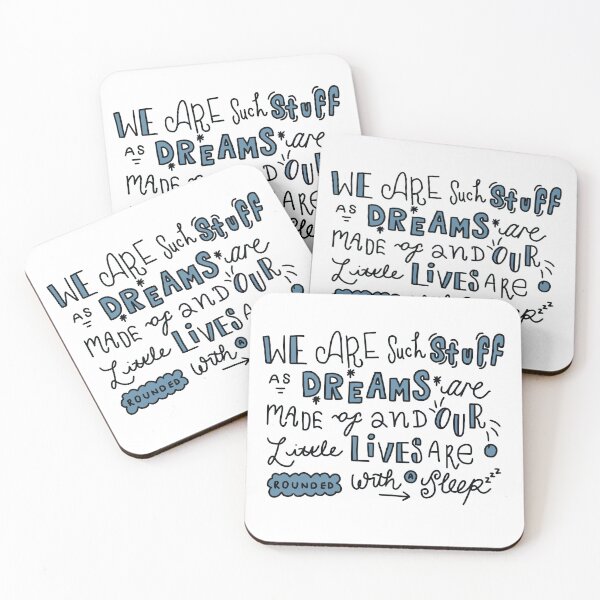 WE ARE Such Stuff
AS DREAMS are
MADE AND OUR
ARE
WE ARE Such Stuff
AS DREAMS are
MADE of AND OUR
Little LIVES ARE
Sleep zzz
WE ARE Such Stuff
AS DREAMS are
MADE of AND OUR
Little LIVES
ROUNDED with A
WE ARE Such Stuff
AS DREAMS are
MADE of AND OUR
Little LIVES ARE
ROUNDED with A Sleep zzz